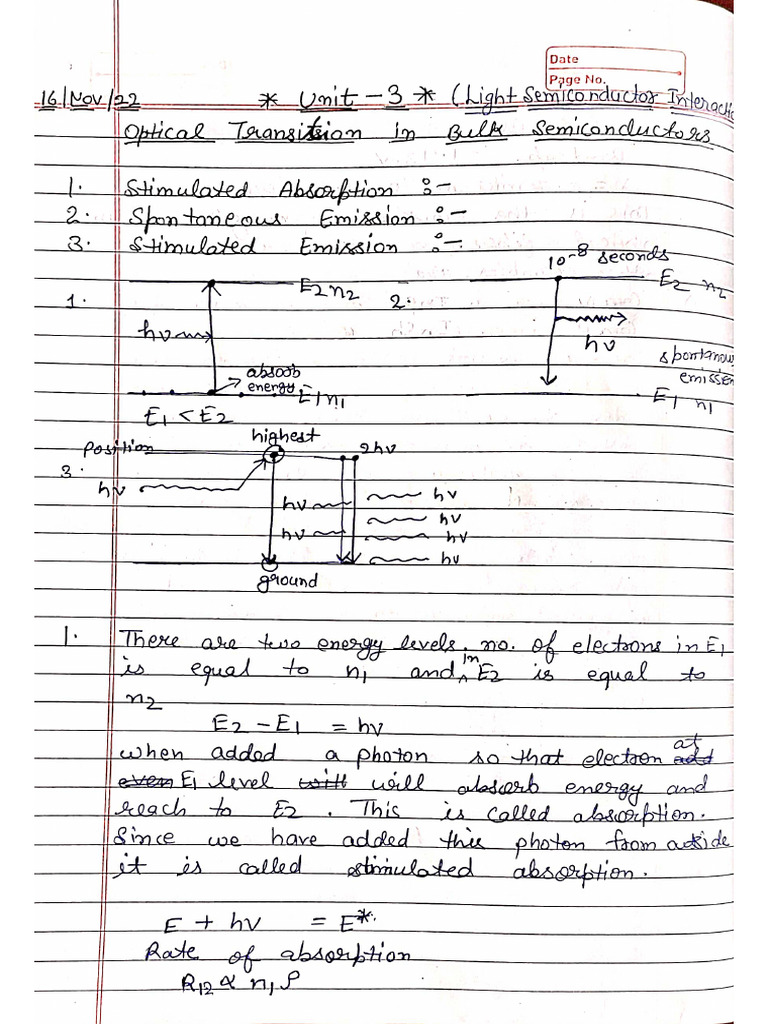 Date
Page No.
16/Nov/22 * Unit - 3 * (Light Semiconductor Interactio
Optical Transition in Bulk Semiconductors
1. Stimulated Absorption :-
2. Spontaneous Emission :-
3. Stimulated Emission :-
10⁻⁸ seconds
1. E2 n2
2. E2 n2
hν
hν
absorb
energy
spontaneous
emission
E1 n1
E1 n1
E1 < E2
highest
position
2hν
3.
hν
hν
hν
hν
hν
hν
hν
ground
1. There are two energy levels. no. of electrons in E1
is equal to n1 and in E2 is equal to
n2
E2 - E1 = hν
when added a photon so that electron at
E1 level will absorb energy and
reach to E2. This is called absorption.
Since we have added this photon from outside
it is called stimulated absorption.
E + hν = E*.
Rate of absorption
R12 ∝ n1 ρ